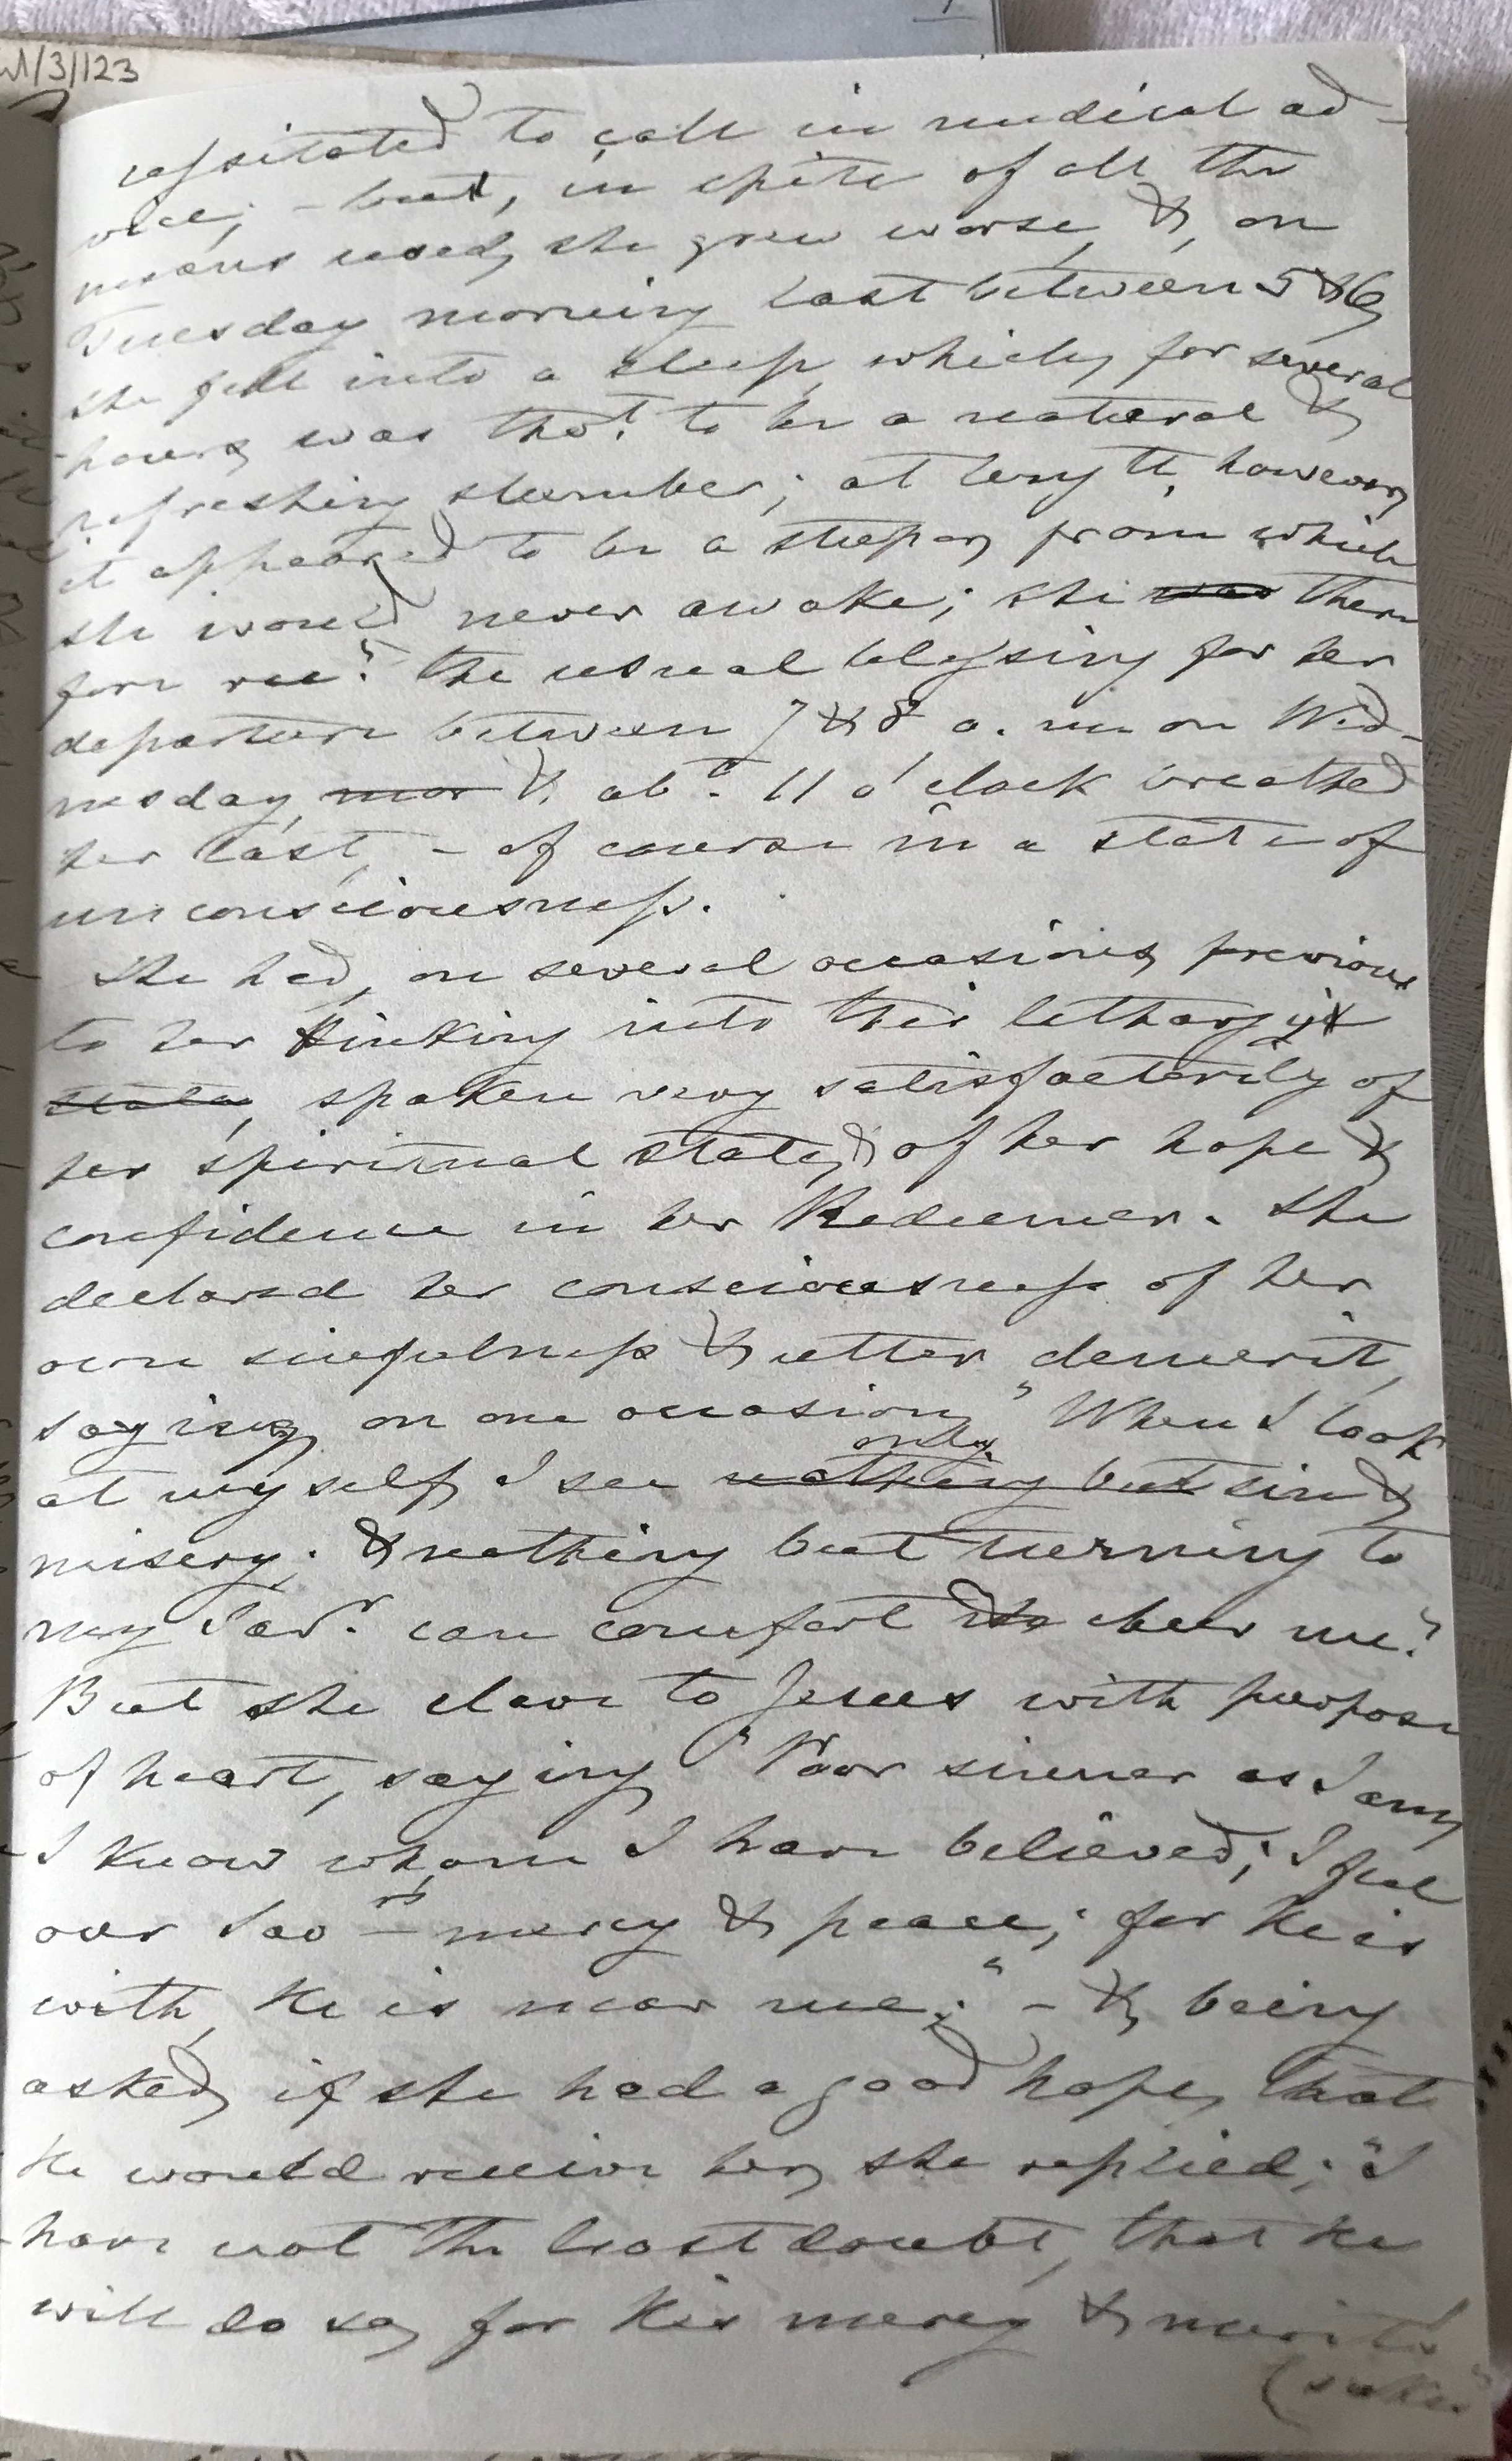 /3/123
cessitated to call in medical ad-
vice; - but, in spite of all the
means used, she grew worse, &, on
Tuesday morning last between 5 & 6,
she fell into a sleep, which, for several
hours, was thot. to be a natural &
refreshing slumber; at length, however,
it appeared to be a stupor, from which
she would never awake; she was there
fore recd. the usual blessing for her
departure between 7 & 8 a. m. on Wed-
nesday, mor &, abt. 11 o'clock breathed
her last, - of course in a state of
unconsciousness.
She had, on several occasions, previous
to her sinking into this lethargy
state, spoken very satisfactorily of
her spiritual state, & of her hope &
confidence in her Redeemer. She
declared her consciousness of her
own sinfulness & utter demerit,
saying, on one occasion, "When I look
only
at myself, I see nothing but sin &
misery; & nothing but turning to
my Savr. can comfort & cheer me."
But she clave to Jesus with purpose
of heart, saying, "Poor sinner as I am,
I know whom I have believed; I feel
our Savrs. mercy & peace; for He is
with, He is near me;" - &, being
asked, if she had a good hope, that
He would receive her, she replied; "I
have not the least doubt, that He
will do so, for His mercy & merits'
(sake."